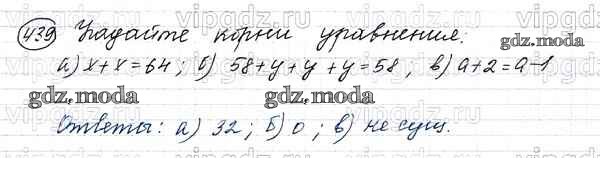 439 Угадайте корни уравнения:
а) x+x=64; б) 58+y+y+y=58; в) a+2=a-1
Ответы: а) 32; б) 0; в) не сущ.
gdz.moda
gdz.moda
gdz.moda
gdz.moda